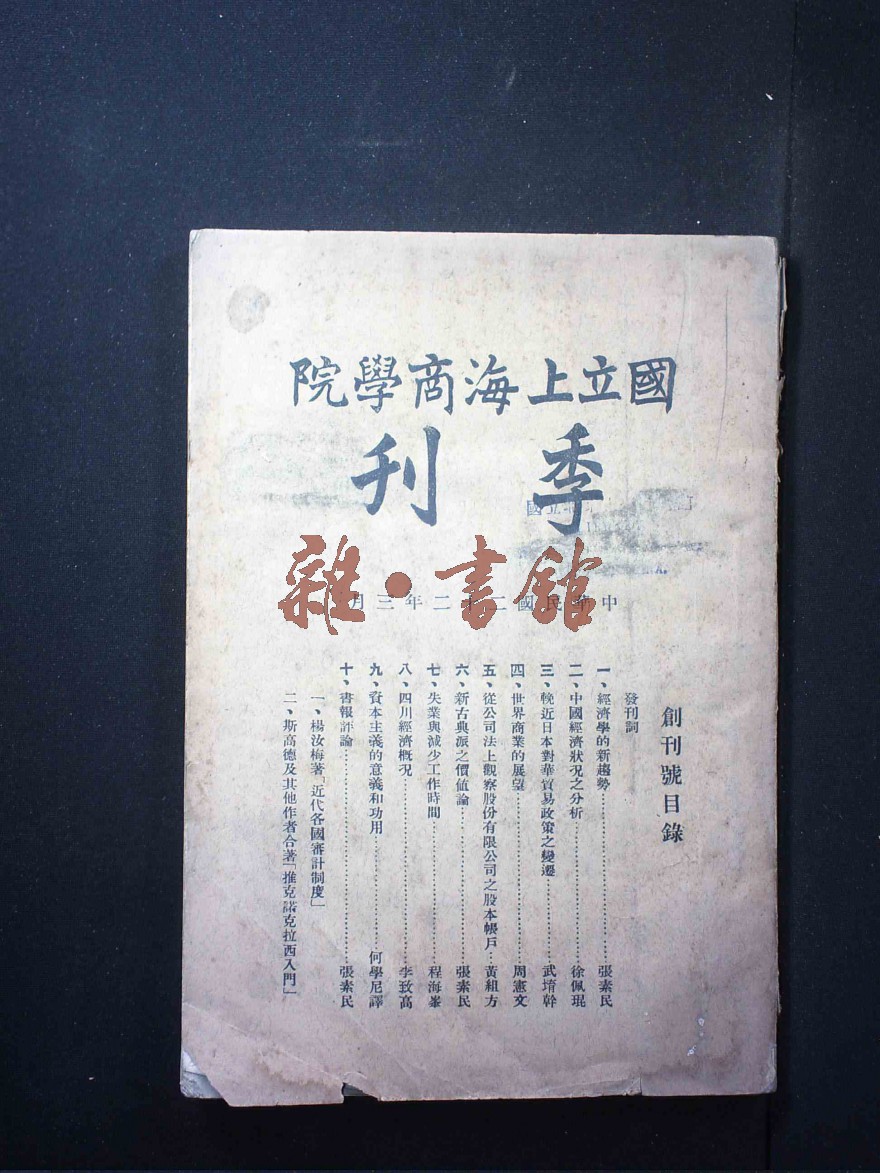 國立上海商學院
季刊
中華民國二十二年三月
雜·書館
創刊號目錄
發刊詞
一、經濟學的新趨勢……張素民
二、中國經濟狀況之分析……徐佩琨
三、輓近日本對華貿易政策之變遷……武堉幹
四、世界商業的展望……周憲文
五、從公司法上觀察股份有限公司之股本帳戶……黃組方
六、新古典派之價值論……張素民
七、失業與減少工作時間……程海峯
八、四川經濟概況……李致高
九、資本主義的意義和功用……何學尼譯
十、書報評論……張素民
一、楊汝梅著「近代各國審計制度」
二、斯高德及其他作者合著「推克諾克拉西入門」